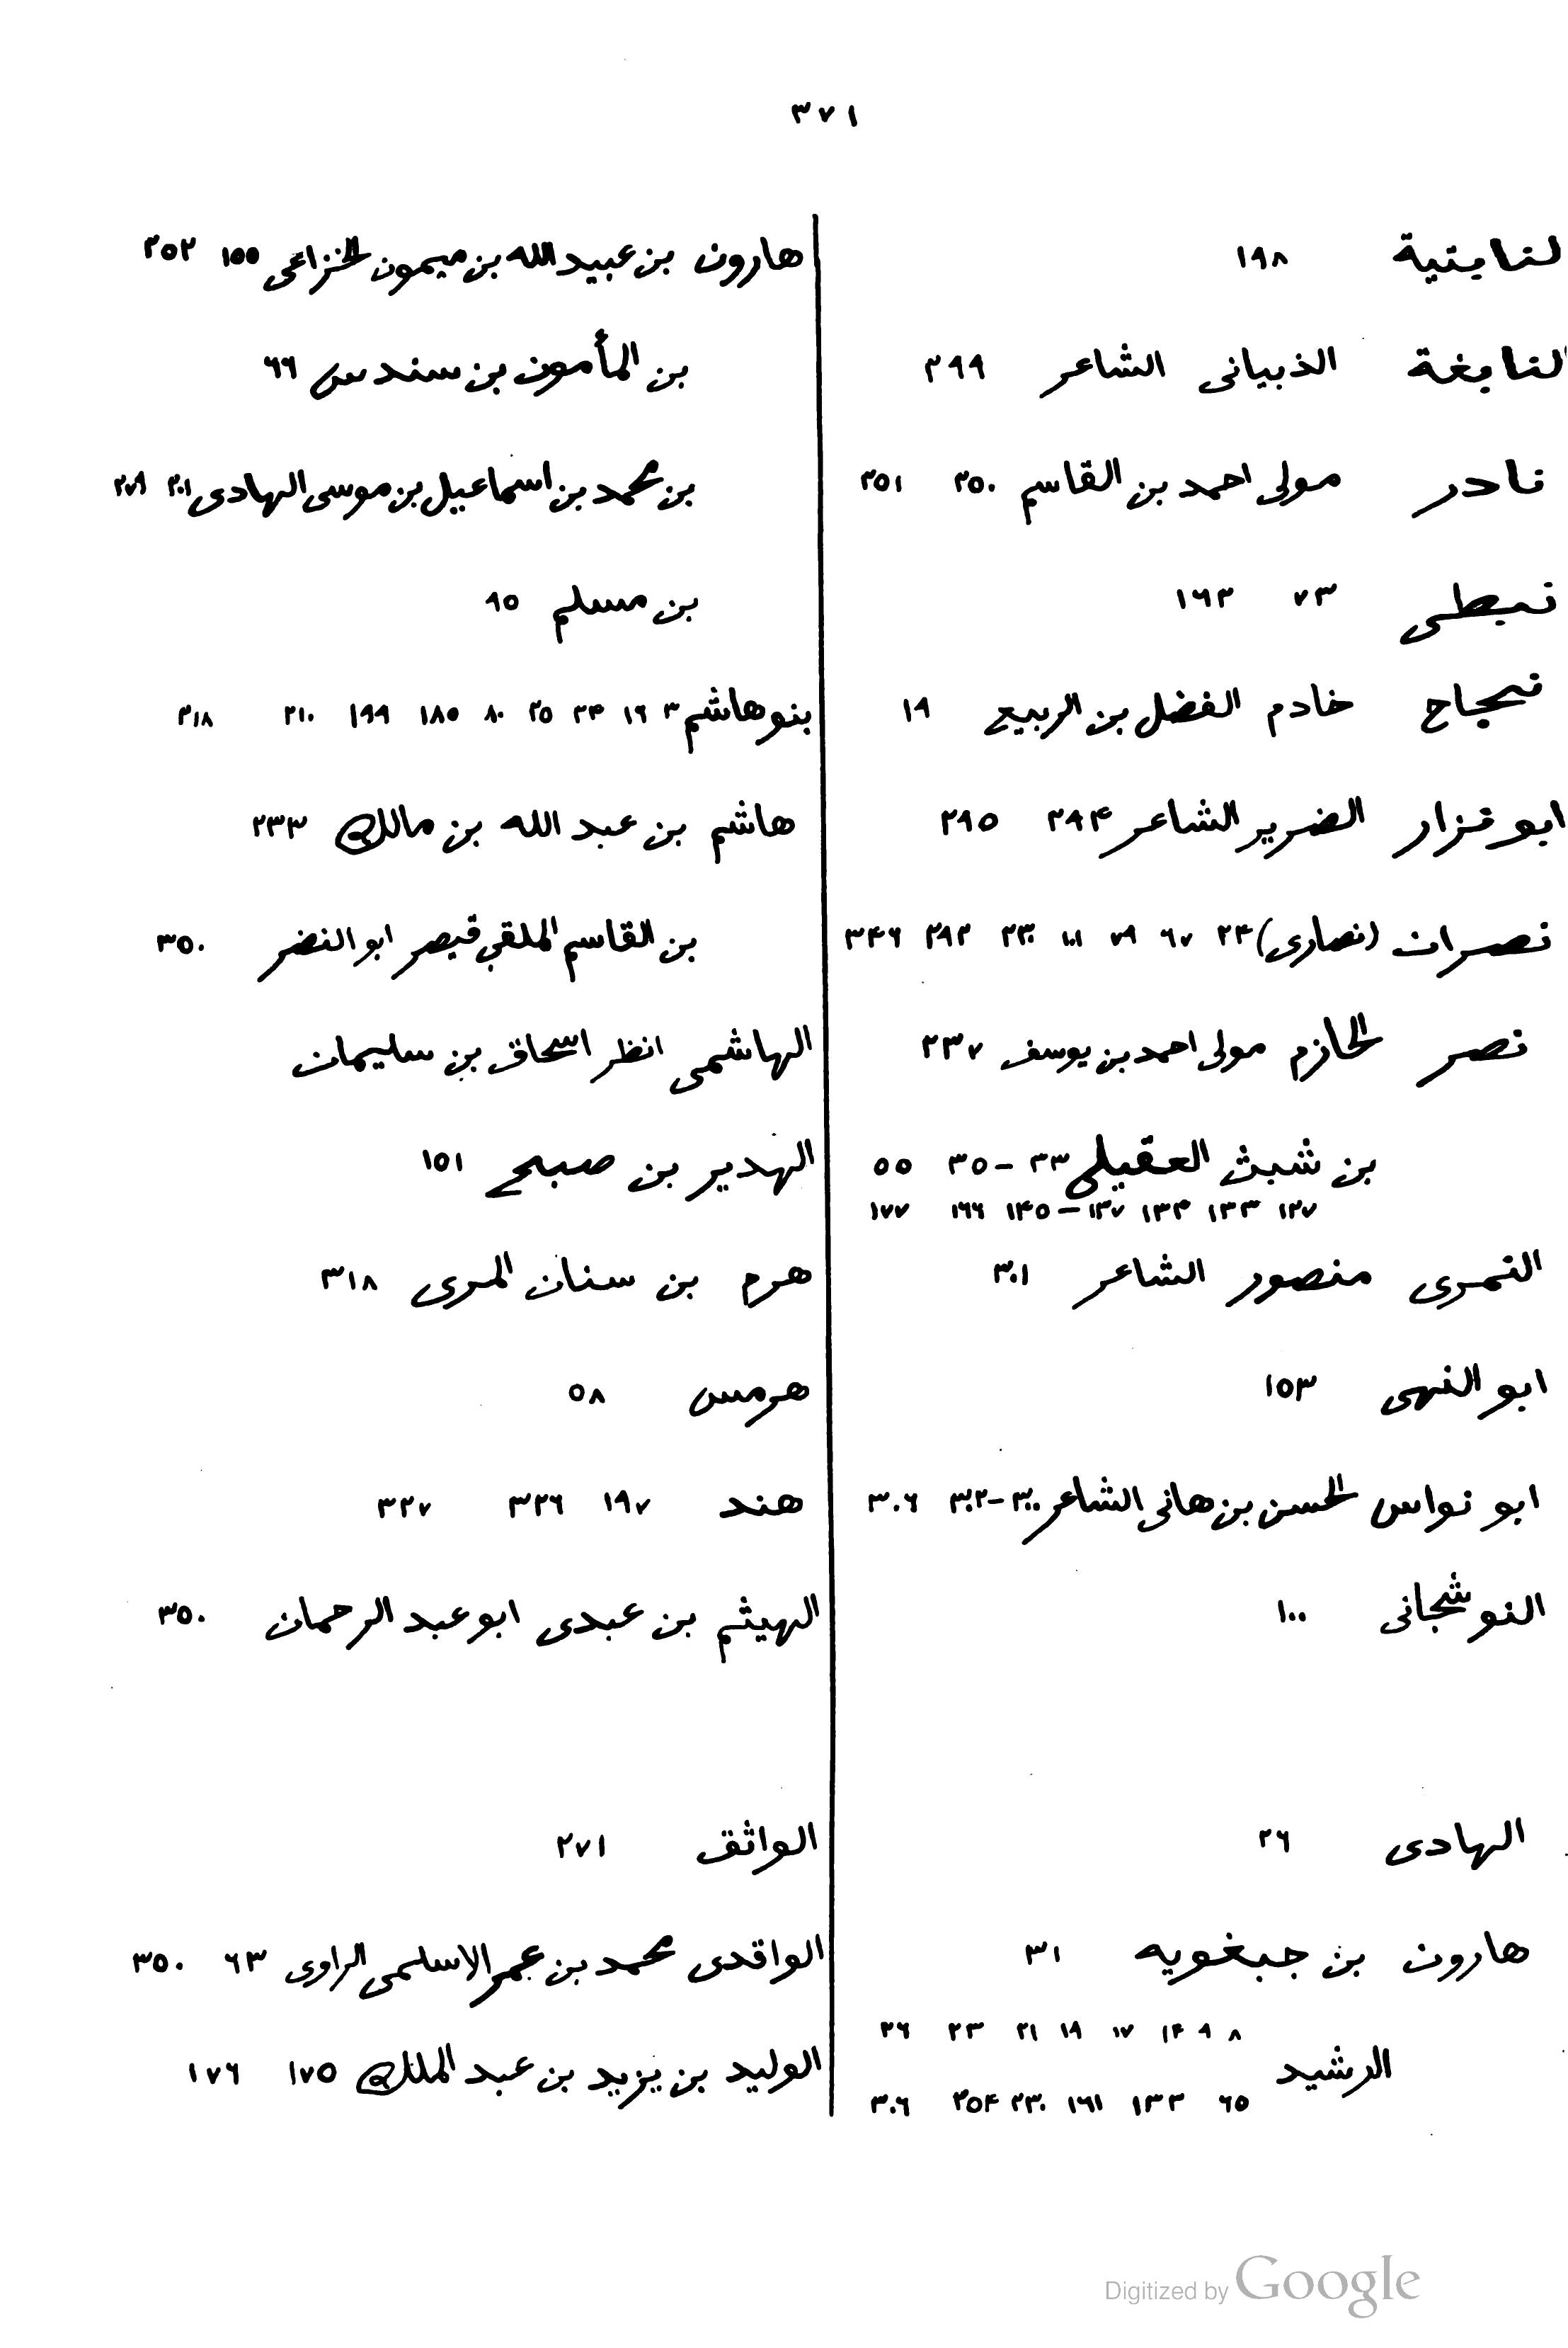 ٣٧١
لنابتية ١٩٨
لنابغة الذبيانى الشاعر ٢٩٩
نادر مولى احمد بن القاسم ٢٥٠ ٢٥١
نبطى ٧٣ ١٦٣
نجاح خادم الفضل بن الربيع ١٩
ابو نزار الضرير الشاعر ٢٩٤ ٢٩٥
نصران (نصارى) ٢٤ ٦٧ ٧٩ ١٠١ ٢٣٠ ٢٩٢ ٣٤٦
نصر الخازم مولى احمد بن يوسف ٢٣٧
بن شبث العقيلى ٣٣ - ٣٥ ٥٥
١٢٧ ١٣٣ ١٣٤ ١٣٧ - ١٤٥ ١٦٦ ١٧٧
النمرى منصور الشاعر ٣٠١
ابو النهى ١٥٣
ابو نواس الحسن بن هانى الشاعر ٣٠٠-٣٠٢ ٣٠٦
النوشجانى ١٠٠
الهادى ٢٦
هارون بن جبغويه ٣١
٨ ٩ ١٤ ١٧ ١٩ ٢١ ٢٣ ٢٦
الرشيد
٦٥ ١٣٣ ١٦١ ٢٣٠ ٢٥٤ ٣٠٦
هارون بن عبيد الله بن ميمون الخزاعى ١٥٥ ٢٥٢
بن المأمون بن سندس ٦٦
بن محمد بن اسماعيل بن موسى الهادى ٢٠١ ٢٧٩
بن مسلم ٩٥
بنو هاشم ٣ ١٦ ٢٤ ٢٥ ٨٠ ١٨٥ ١٩٩ ٢١٠ ٢١٨
هاشم بن عبد الله بن مالك ٢٣٣
بن القاسم الملقب قيصر ابو النضر ٣٥٠
الهاشمى انظر اسحاق بن سليمان
الهدير بن صبح ١٥١
هرم بن سنان المرى ٣١٨
هرمس ٥٨
هند ١٩٧ ٣٢٦ ٣٢٧
الهيثم بن عبدى ابو عبد الرحمان ٣٥٠
الواثق ٢٧١
الواقدى محمد بن عمر الاسلمى الراوى ٦٣ ٣٥٠
الوليد بن يزيد بن عبد الملك ١٧٥ ١٧٦
Digitized by Google